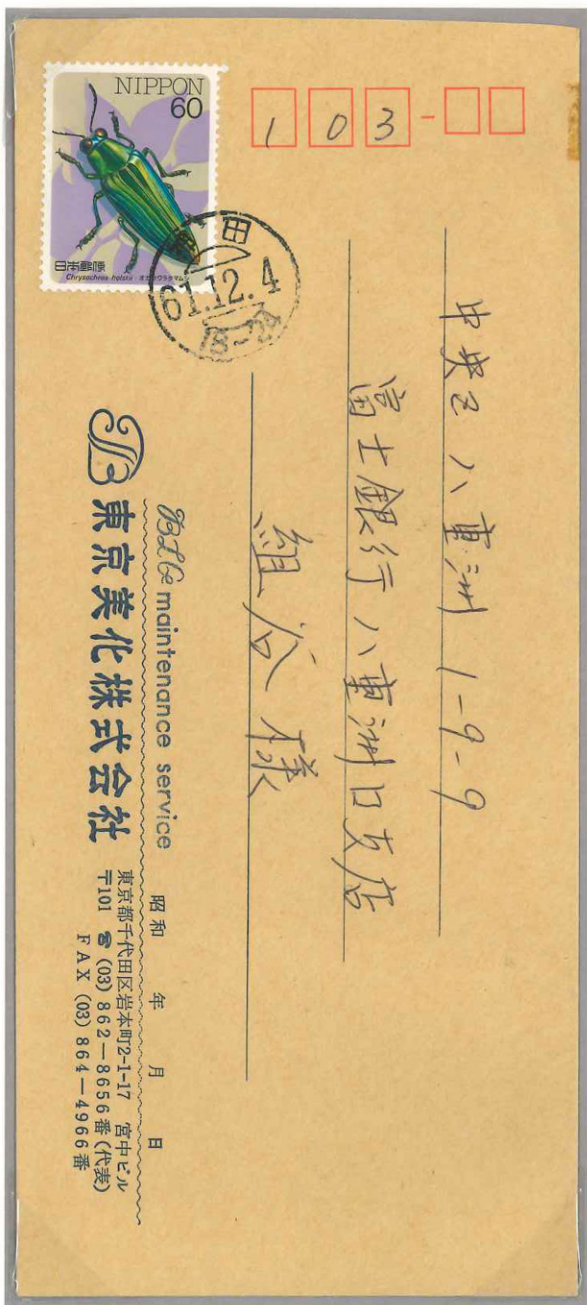 NIPPON
60
日本郵便
Chrysochroa holstii・オガサワラタマムシ
田
61.12.4
18-24
103-
中央区八重洲1-9-9
富士銀行八重洲口支店
組谷様
BLCo maintenance service
東京美化株式会社
昭和 年 月 日
東京都千代田区岩本町2-1-17 宮中ビル
〒101 ☎ (03) 862―8656番(代表)
FAX (03) 864―4966番